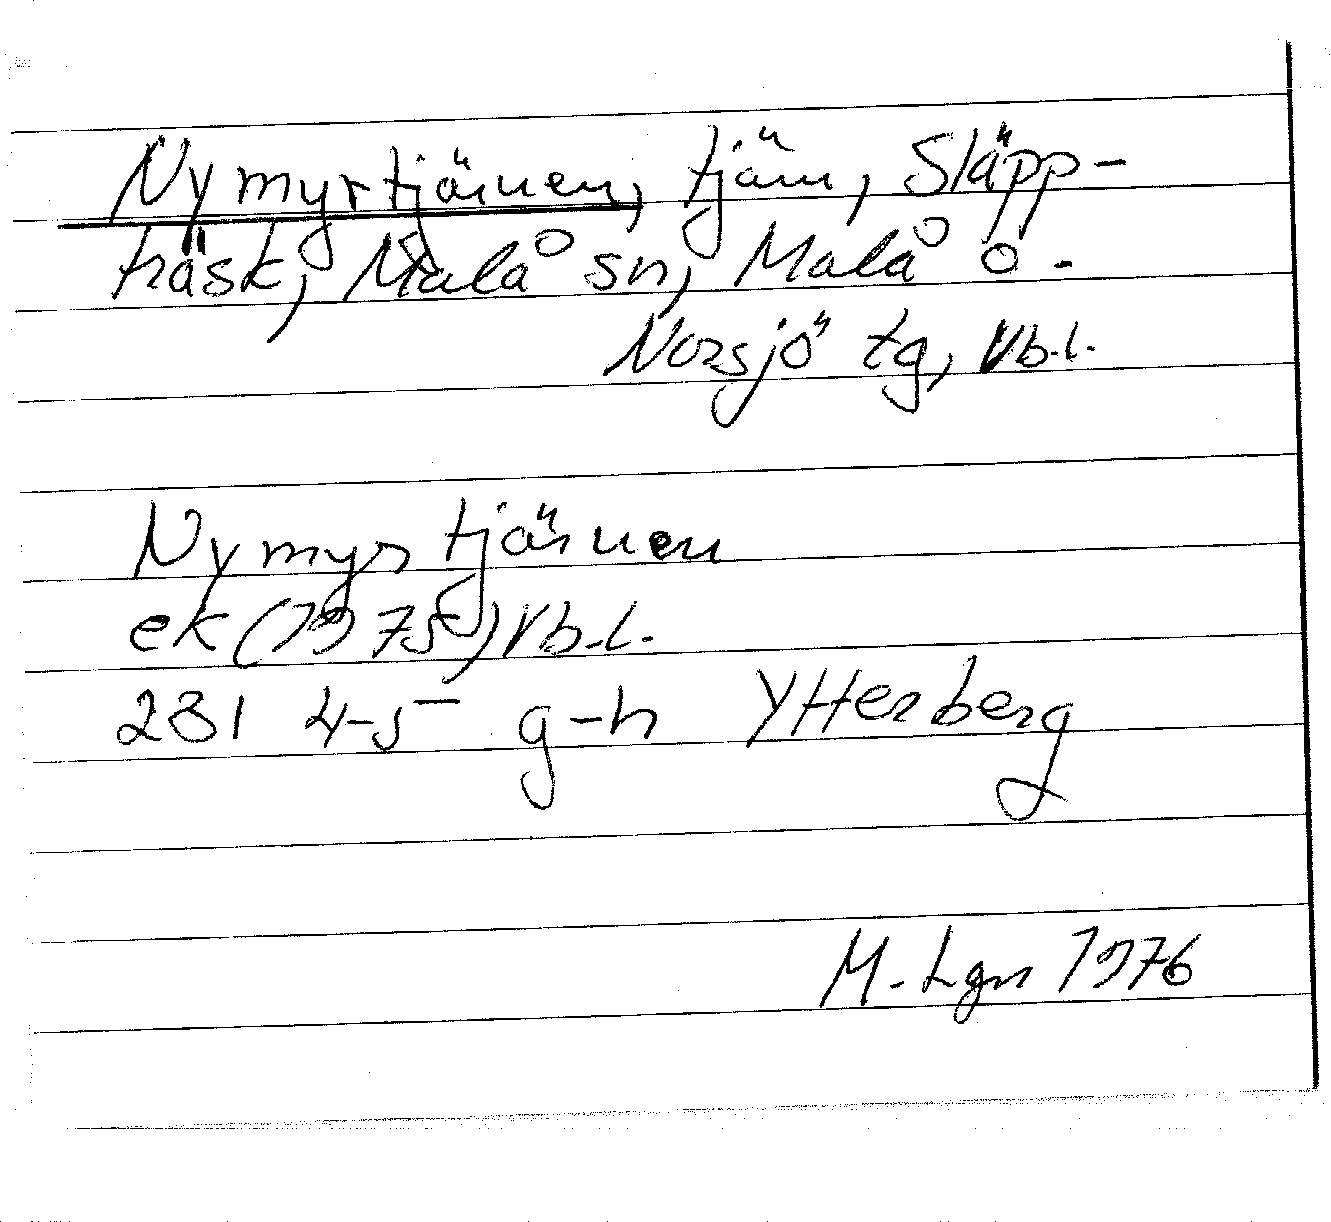 Nymyrtjärnen, tjärn, Släpp-
träsk, Malå sn, Malå o.
Norsjö tg, Vb.l.
Nymyrtjärnen
ek (1975) Vb.l.
231 4-5 g-h Ytterberg
M-Lgn 1976